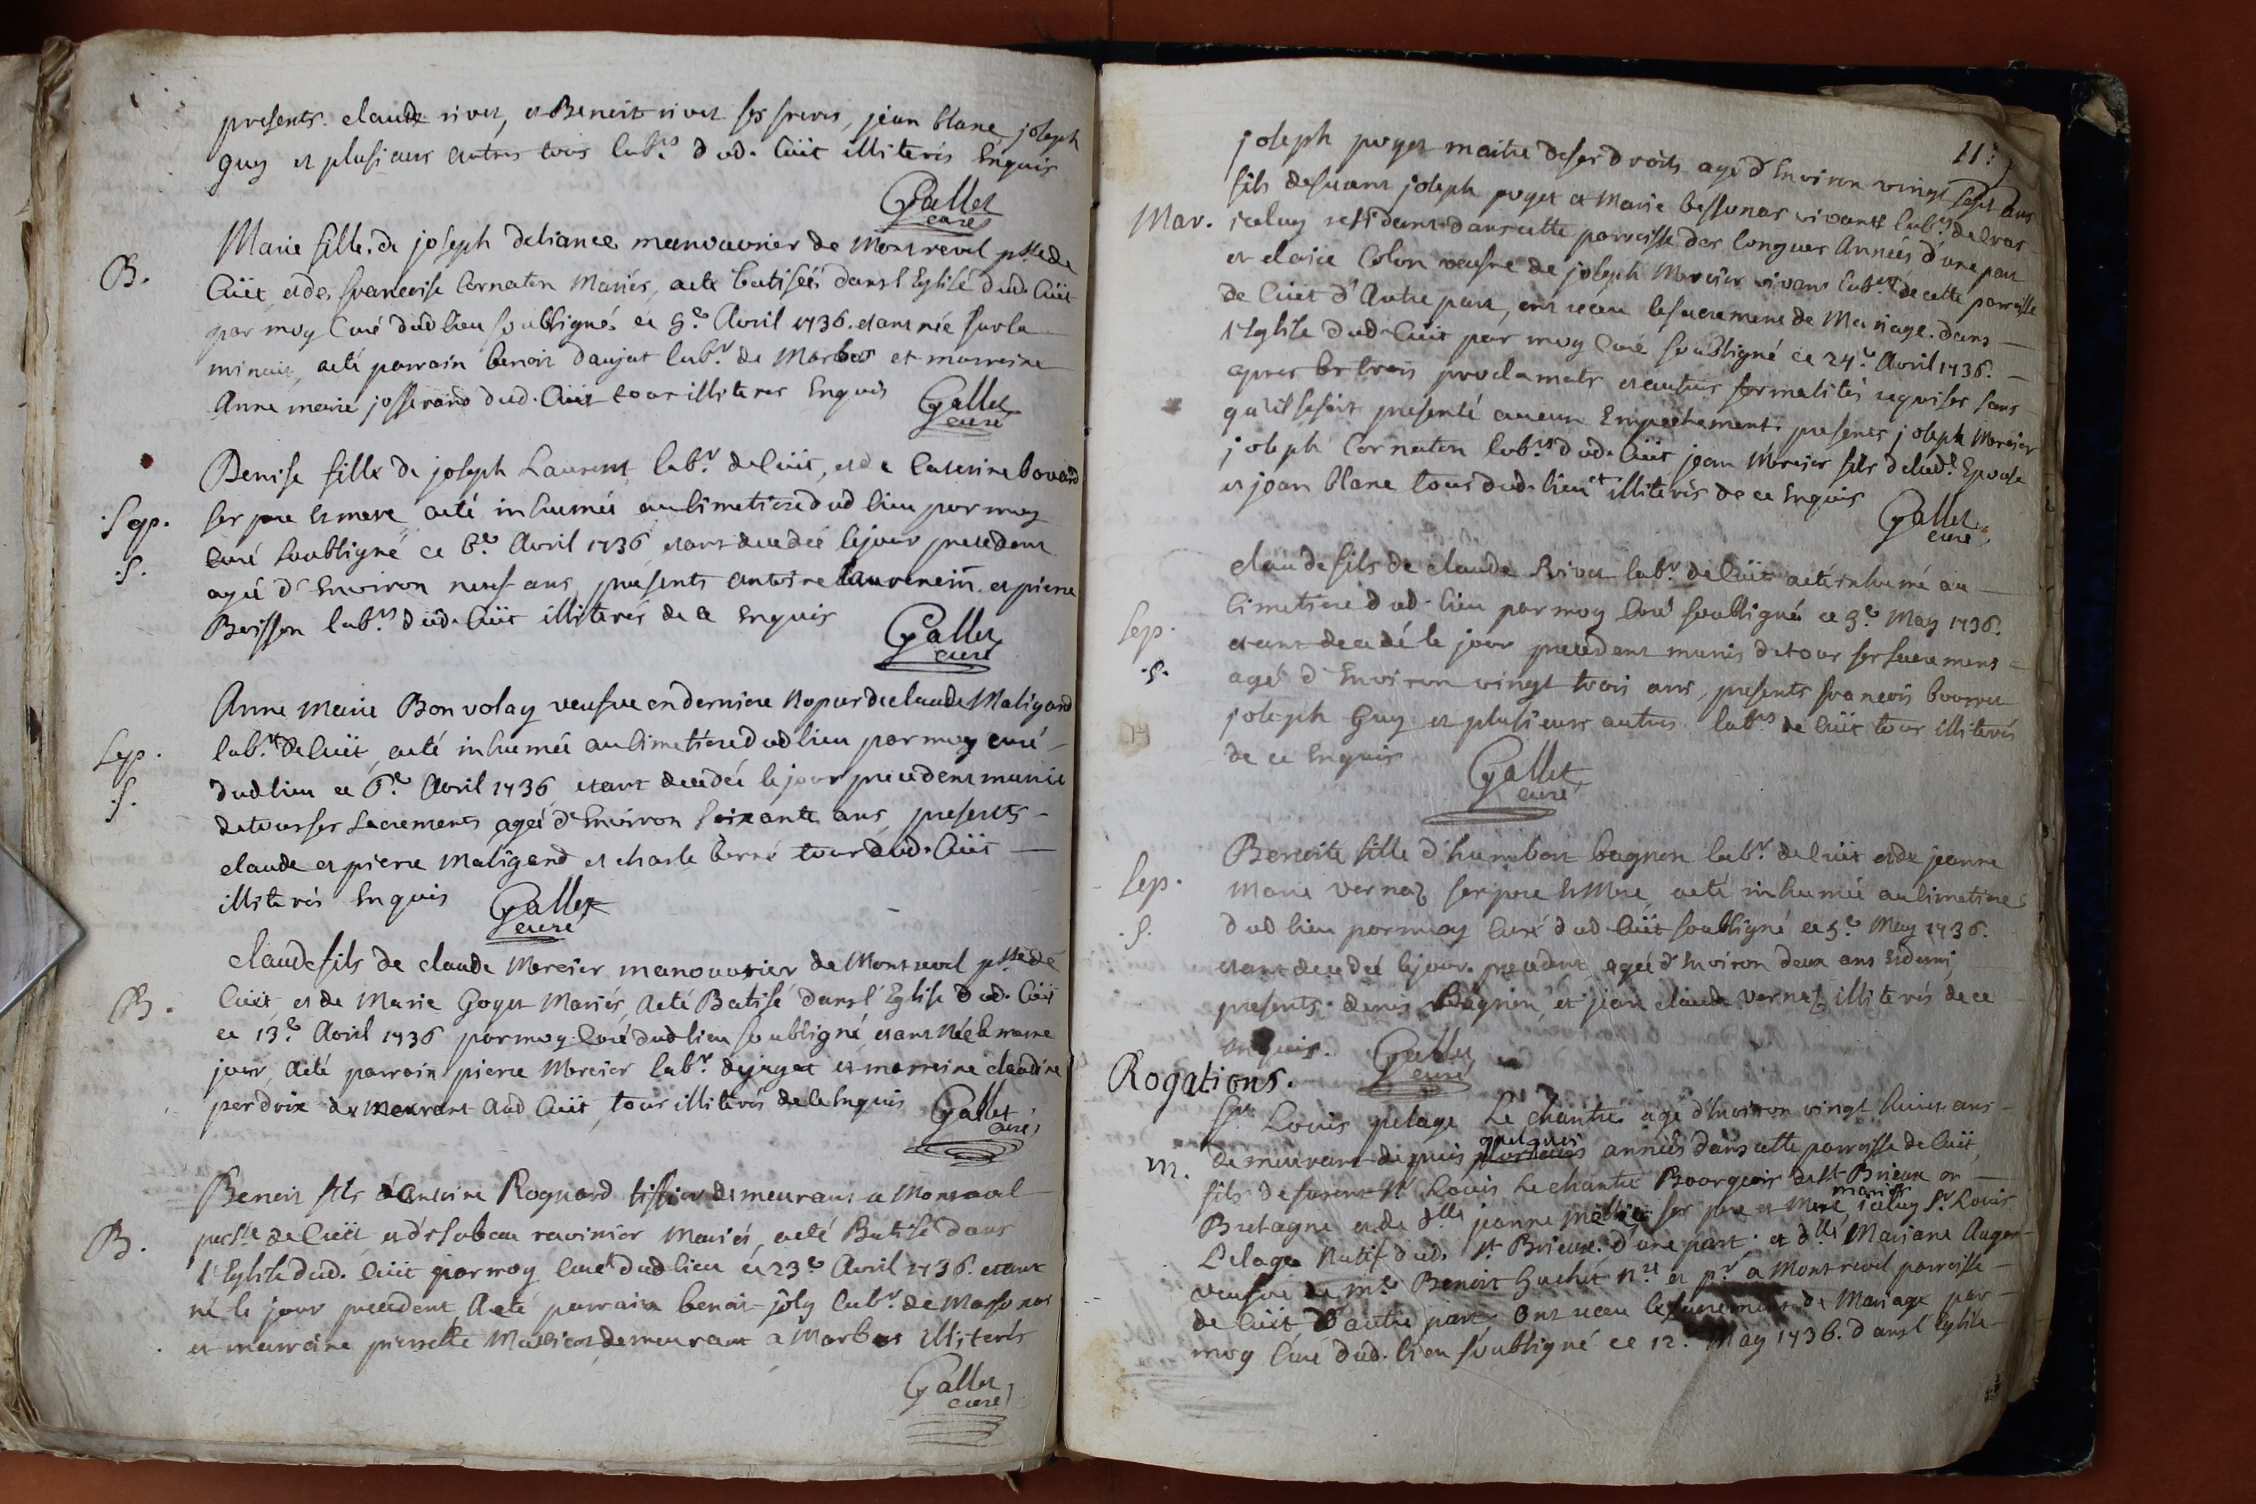 presents. claude rivet, et Benoit rivet ses freres, jean blanc joseph
guy et plusieurs autres tous lab.rs dud. Cüit illiterés Enquis
Gallet
curé
B.
Marie fille de joseph deliance manouvrier de Montrevel p.sse de
Cüit, et de francoise Cornaton Mariés, aeté batiséé dans l'Eglise dud. Cüit
par moy Curé dud lieu soubsigné ce 3.e Avril 1736. etant née sur la
minuit, aeté parrain benoit daujat lab.r de Marbos et marreine
Anne marie josserand dud. Cüit tous illiteres Enquis
Gallet
curé
Sep.
.S.
Denise fille de joseph Laurent lab.r de Cüit, et de Caterine bovard
ses pere et mere aeté inhumée au Cimetiere dud lieu par moy
Curé soubsigné ce 6.e Avril 1736 etant decedée le jour precedent
agée d'Environ neuf ans, presents antoine laurencin et pierre
Boisson lab.rs dud. Cüit illiterés de ce Enquis
Gallet
curé
Sep.
.S.
Anne Marie Bonvolay veufve en derniere Nopces de claude Maligand
lab.r de Cüit, aeté inhumée au Cimetiere dud lieu par moy curé
dud lieu ce 6.e Avril 1736 etant decedée le jour precedent munie
de tous ses sacrements agée d'Environ soixante ans, presents
claude et pierre Maligand et charle berné tous dud. Cüit
illiterés Enquis
Gallet
curé
B.
Claude fils de claude Mercier manouvrier de Montrevel p.sse de
Cüit et de Marie Goyet Mariés, aeté Batisé dans l'Eglise dud. Cüit
ce 13.e Avril 1736 par moy Curé dud lieu soubsigné, etant Né le mesme
jour, aeté parrain pierre Mercier lab.r de jayat et marreine claudine
perdrix demeurant aud Cüit, tous illiterés de ce Enquis
Gallet
curé
B.
Benoit fils d'antoine Roguard tissier demeurant a Montrevel
p.sse de Cüit et d'isabeau ravinier Mariés, aeté Batisé dans
l'Eglise dud. Cüit par moy Curé dud lieu ce 23.e Avril 1736. etant
né le jour precedent aeté parrain benoit joly lab.r de Massonas
et marreine pierrette demeurant a Marbos illiterés
Gallet
curé
11
Mar.
joseph puget maitre de ses droits agé d'Environ vingt sept ans
fils de feu joseph puget et Marie bessonar vivants lab.rs de Cras
iceluy residant dans cette paroisse des longues Années d'une part
et claire Colon veufve de joseph Mercier vivant lab.r de cette paroisse
de Cüit d'Autre part, ont receu le sacrement de Mariage dans
l'Eglise dud. Cüit par moy Curé soubsigné ce 24.e Avril 1736.
apres les trois proclamats et autres formalités requises sans
qu'il se soit presenté aucun Empechement. presents joseph Mercier
joseph Cornaton lab.rs dud. Cüit jean Mercier fils de lad. Epouse
et jean blanc tous dud. lieu et illiterés de ce Enquis
Gallet
curé
Sep.
.S.
Claude fils de claude Rivet lab.r de Cüit aeté inhumé au
Cimetiere dud. lieu par moy Curé soubsigné ce 3.e May 1736.
etant decedé le jour precedent munis de tous ses sacrements
agé d'Environ vingt trois ans, presents francois bourru
joseph Guy et plusieurs autres lab.rs de Cüit tous illiterés
de ce Enquis
Gallet
curé
Sep.
.S.
Benoite fille d'humbert bagnon lab.r de Cüit et de jeanne
Marie vernaz ses pere et Mere aeté inhumée au Cimetiere
dud lieu par moy Curé dud Cüit soubsigné ce 5.e May 1736.
etant decedée le jour precedent agée d'Environ deux ans et demi,
presents. denis Bagnon, et jean claude vernaz illiterés de ce
enquis.
Gallet
curé
Rogations.
m.
S.r Louis pelage Le chantre agé d'Environ vingt huit ans
demeurant depuis quelques années dans cette paroisse de Cüit,
fils de furent S.r Louis Le chantre Bourgeois de St Brieux en
Bretagne et de d.lle jeanne ses pere et Mere mariés, iceluy S.r Louis
Pelage Natif dud. St Brieux. d'une part. et d.lle Mariane Auger
veufve de m.e Benoit Guchet n.re et p.r a Montrevel paroisse
de Cüit d'autre part, ont receu le sacrement de Mariage par
moy Curé dud. lieu soubsigné ce 12.e May 1736. dans l'Eglise